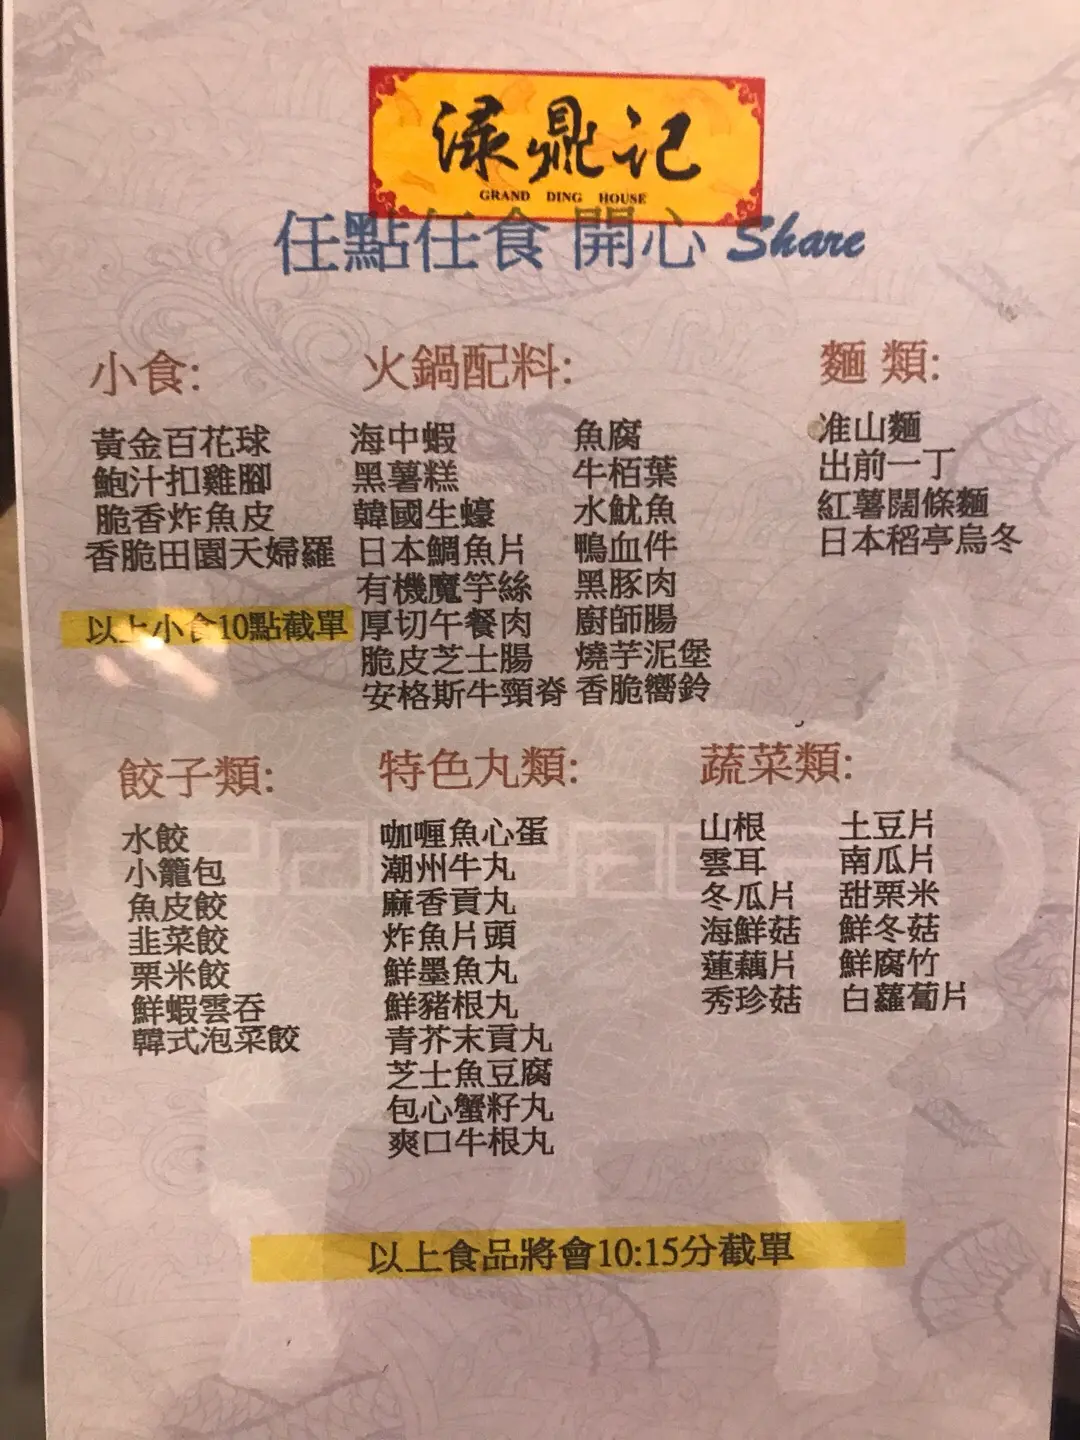 渌鼎记
GRAND DING HOUSE
任點任食 開心 Share
小食:
黃金百花球
鮑汁扣雞腳
脆香炸魚皮
香脆田園天婦羅
以上小食10點截單
火鍋配料:
海中蝦
黑薯糕
韓國生蠔
日本鯛魚片
有機魔芋絲
厚切午餐肉
脆皮芝士腸
安格斯牛頸脊
魚腐
牛栢葉
水魷魚
鴨血件
黑豚肉
廚師腸
燒芋泥堡
香脆嚮鈴
麵 類:
准山麵
出前一丁
紅薯闊條麵
日本稻亭烏冬
餃子類:
水餃
小籠包
魚皮餃
韭菜餃
栗米餃
鮮蝦雲吞
韓式泡菜餃
特色丸類:
咖喱魚心蛋
潮州牛丸
麻香貢丸
炸魚片頭
鮮墨魚丸
鮮豬根丸
青芥末貢丸
芝士魚豆腐
包心蟹籽丸
爽口牛根丸
蔬菜類:
山根
雲耳
冬瓜片
海鮮菇
蓮藕片
秀珍菇
土豆片
南瓜片
甜栗米
鮮冬菇
鮮腐竹
白蘿蔔片
以上食品將會10:15分截單